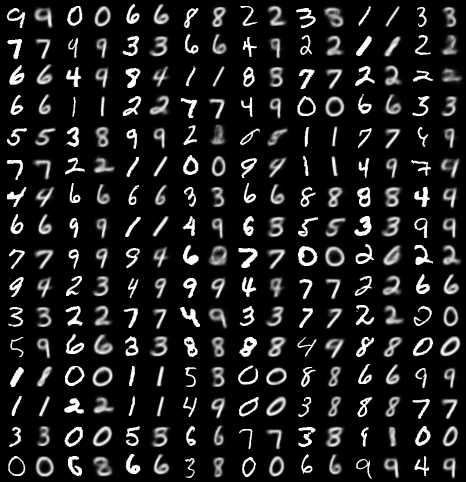 9 9 0 0 6 6 8 8 2 2 3 8 1 1 3 3
7 7 9 9 3 3 6 6 4 9 2 2 1 1 2 2
6 6 4 9 8 4 1 1 8 8 7 7 2 2 2 2
6 6 1 1 2 2 7 7 4 9 0 0 6 6 3 3
5 5 3 8 9 9 2 5 1 1 7 7 9
7 7 2 2 1 1 0 0 9 4 1 1 4 9 7 4
4 4 6 6 6 6 3 3 6 6 8 8 8 8 4 9
6 6 9 9 1 1 4 9 6 3 5 5 3 3 9 9
7 7 9 9 9 4 6 0 7 7 0 0 2 6 2 2
9 4 2 3 4 9 9 9 4 9 7 7 2 2 6 6
3 3 2 2 7 7 4 9 3 3 7 7 2 2 2 0
5 9 6 6 3 3 8 8 8 8 4 9 8 8 0 0
1 8 0 0 1 1 5 3 0 0 8 8 6 6 9 9
1 1 2 2 1 1 4 9 0 0 3 8 8 8 7 7
3 3 0 0 5 5 6 6 7 7 3 8 9 1 0 0
0 0 6 6 6 3 8 0 0 6 6 9 9 4 9